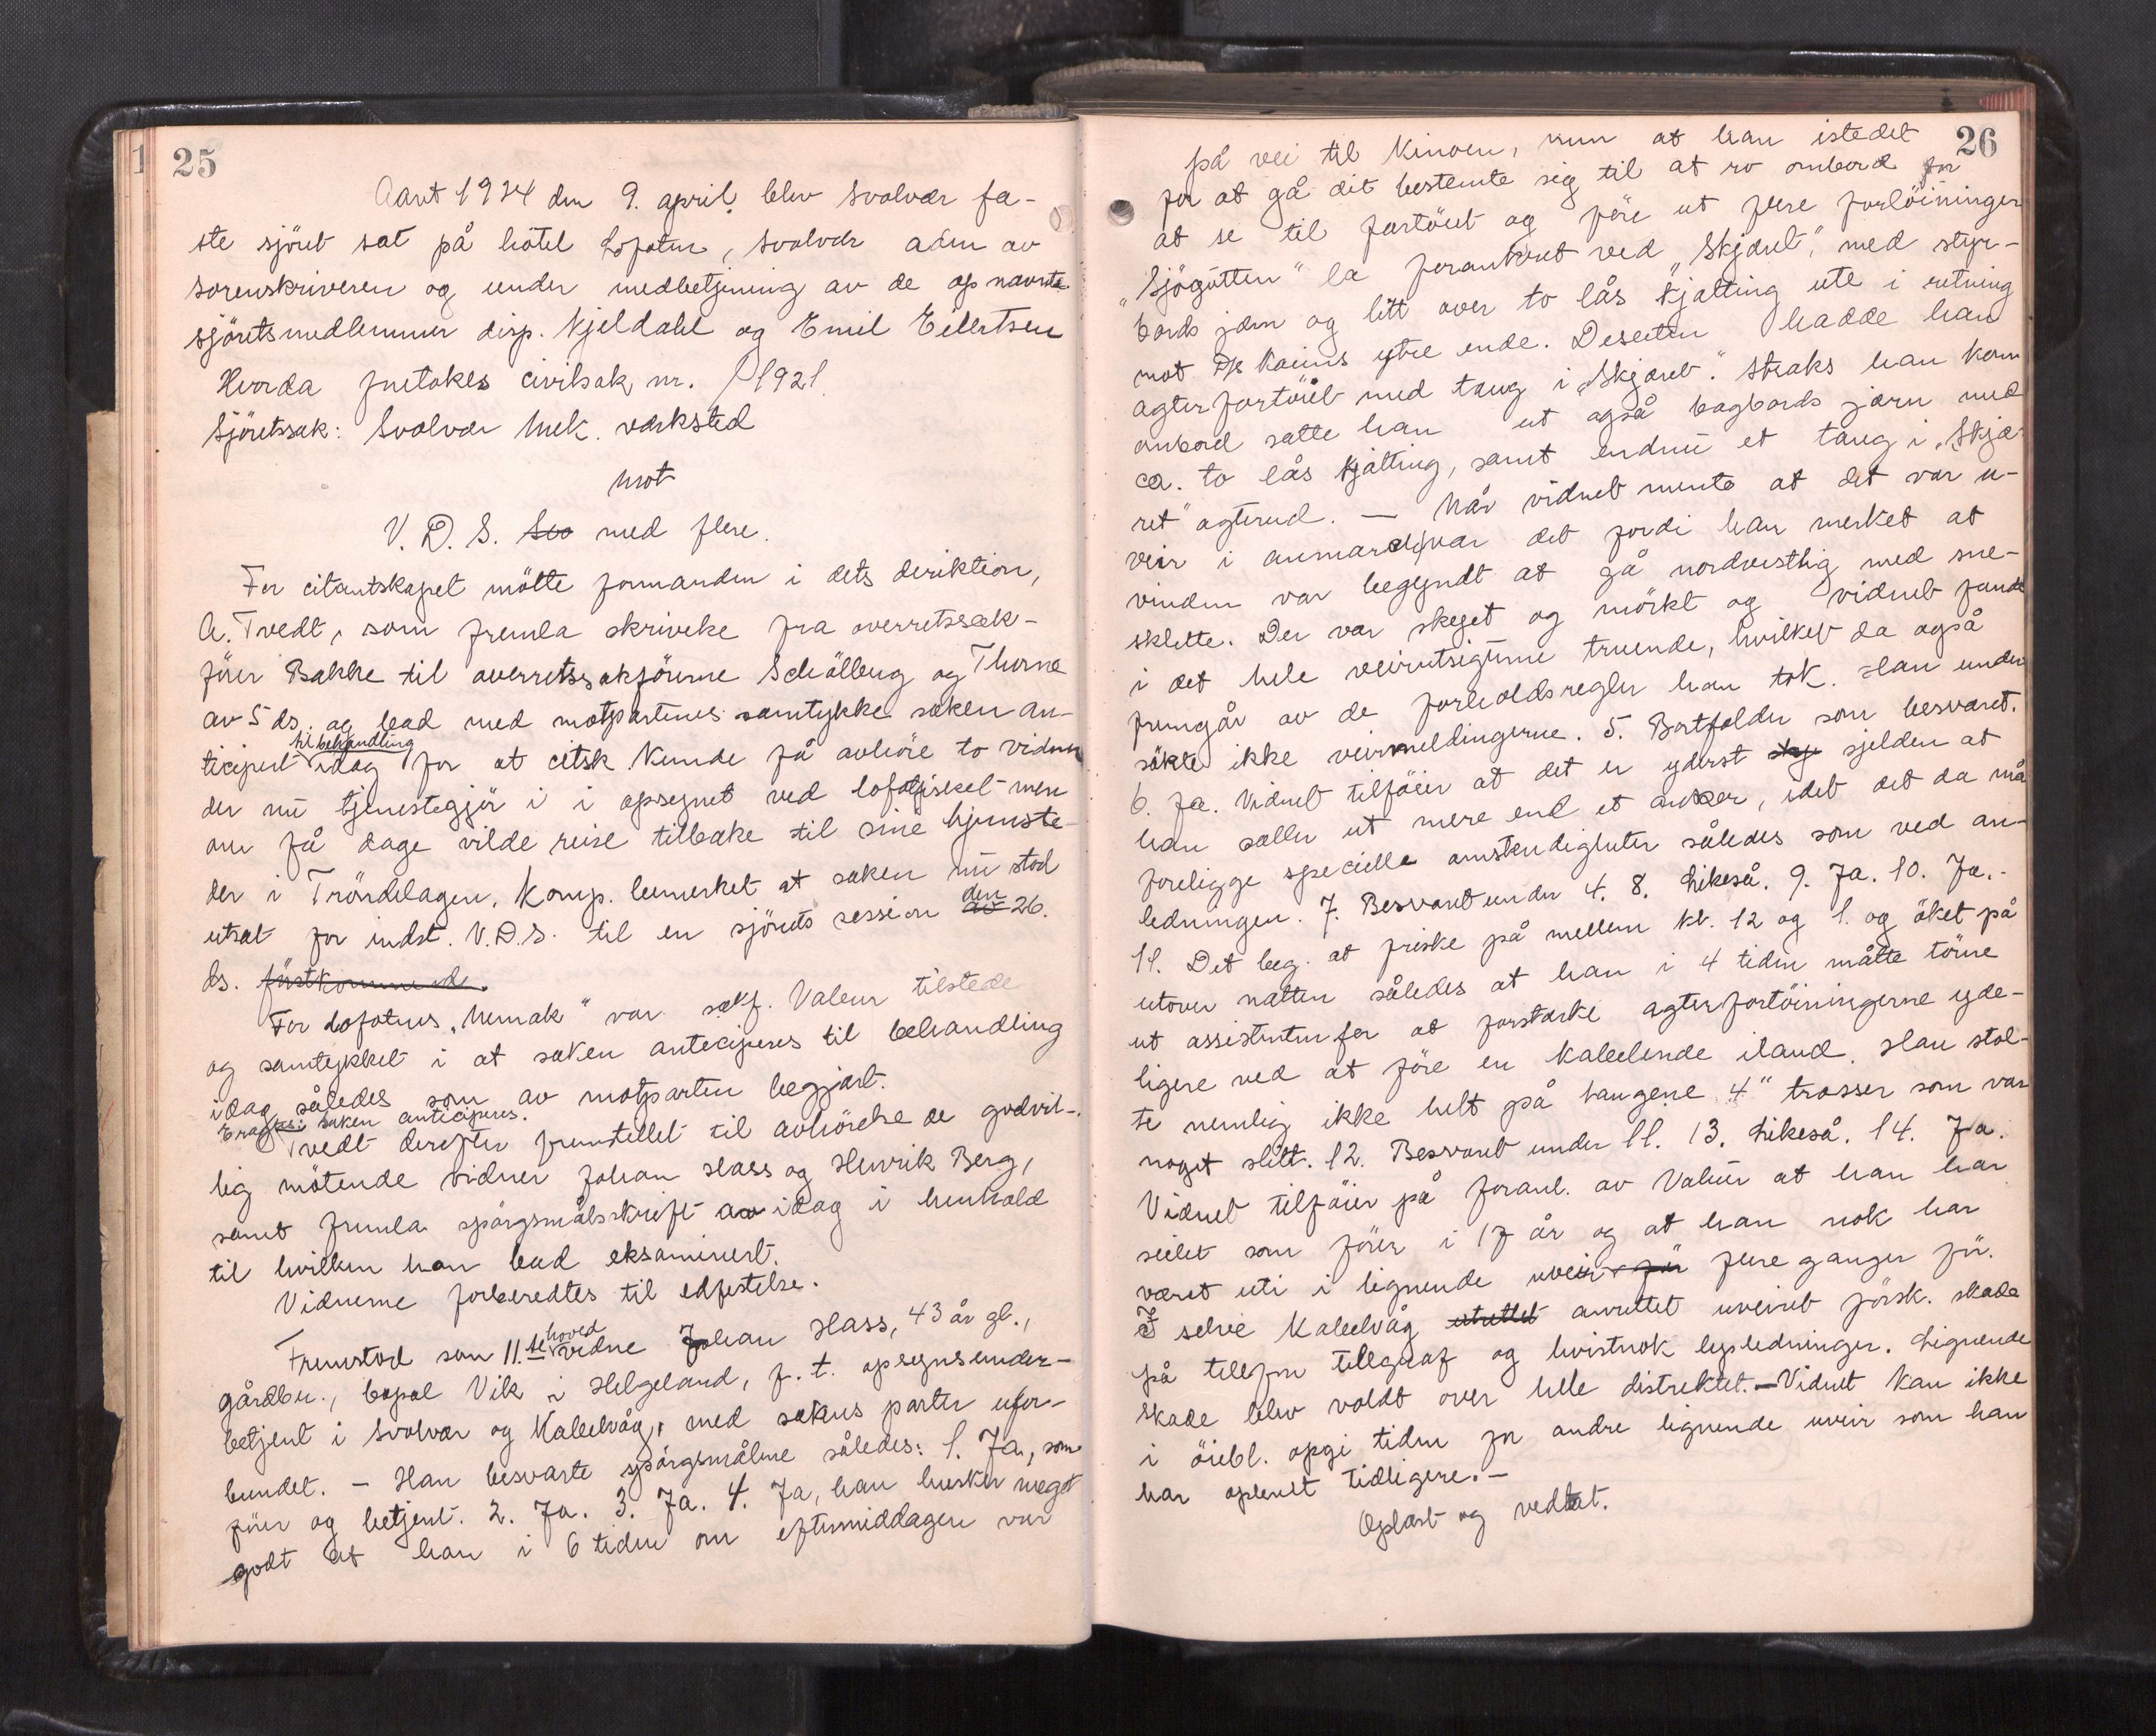 25
Aaret 1924 den 9. april blev Svolvær fa-
ste sjöret sat på hotel Lofoten, Svolvær adm av
sorenskriveren og under medbetjening av de opnævnte
sjöretsmedlemmer disp. Kjeldahl og Emil Eilertsen
Hvorda foretokes civilsak nr. /1921
Sjöretssak: Svolvær Mek. værksted
mot
V. D. S. med flere.
For citantskapet mötte formanden i dets direktion,
A. Tvedt, som fremla skrivelse fra overretssak-
förer Bakke til overretssakförerne Schölberg og Thorne
av 5 ds. og bad med motpartenes samtykke saken an-
ticipert til behandling idag for at citsk. kunde få avhöre to vidner
der nu tjenestegjör i i opsynet ved lofotfisket men
om få dage vilde reise tilbake til sine hjemste-
der i Tröndelagen. Komp. bemerket at saken nu stod
utsat for indst. V.D.S. til en sjörets session den 26.
ds. förstkommende.
For Lofotens "Nemak" var sakf. Valeur tilstede
og samtykket i at saken anteciperes til behandling
idag således som av motparten begjært.
Eragtes: Saken anticiperes.
Tvedt derefter fremstillet til avhörelse de godvil-
lig mötende vidner Johan Hass og Henrik Berg,
samt fremla spörgsmålsskrift av idag i henhold
til hvilken han bad eksaminert.
Vidnerne forberedtes til edfestelse.
Fremstod som 11.te hovedvidne Johan Hass, 43 år gl.,
gårdbr., bopæl Vik i Helgeland, f. t. opsynsunder-
betjent i Svolvær og Kabelvåg, med sakens parter ufor-
bundet. - Han besvarte spörgsmålene således: 1. Ja, som
förer og betjent. 2. Ja. 3. Ja. 4. Ja, han husker meget
godt at han i 6 tiden om eftermiddagen var
26
på vei til Kinoen, men at han istedet
for at gå dit bestemte sig til at ro ombord for
at se til fartöiet og före ut flere fortöininger
"Sjögutten" la forankret ved "Skjæret", med styr-
bords jern og litt over to lås kjætting ute i retning
mot Dp kaiens ytre ende. Desuten hadde han
agterfortöiet med taug i "Skjæret". Straks han kom
ombord satte han ut også bagbords jern med
ca. to lås kjætting, samt endnu et taug i "Skjæ-
ret" agterud. - Når vidnet mente at det var u-
veir i anmarch var det fordi han merket at
vinden var begyndt at gå nordvestlig med sne-
sklette. Der var skyet og mörkt og vidnet fandt
i det hele veirutsigterne truende, hvilket da også
fremgår av de forholdsregler han tok. Han under
sökte ikke veirmeldingerne. 5. Bortfalder som besvaret.
6. Ja. Vidnet tilföier at det er yderst sjelden at
han sætter ut mere end et anker, idet det da må
foreligge specielle omstendigheter således som ved an-
ledningen. 7. Besvaret under 4. 8. Likeså. 9. Ja. 10. Ja.-
11. Det beg. at friske på mellem kl. 12 og 1. og öket på
utover natten således at han i 4 tiden måtte törne
ut assistenten for at forstærke agterfortöiningerne yde-
ligere ved at före en kabelende iland. Han stol-
te nemlig ikke helt på haugene 4" trosser som var
noget slitt. 12. Besvaret under 11. 13. Likeså. 14. Ja.
Vidnet tilföier på foranl. av Valeur at han har
seilet som förer i 17 år og at han nok har
været uti i lignende uveir för flere ganger för.
I selve Kabelvåg utrettet anrettet uveiret forsk. skade
på telefon tellgraf og hvistnok lysledninger. Lignende
skade blev voldt over hele distriktet. - Vidnet kan ikke
i öiebl. opgi tiden for andre lignende uveir som han
har oplevet tidligere. -
Oplæst og vedtat.